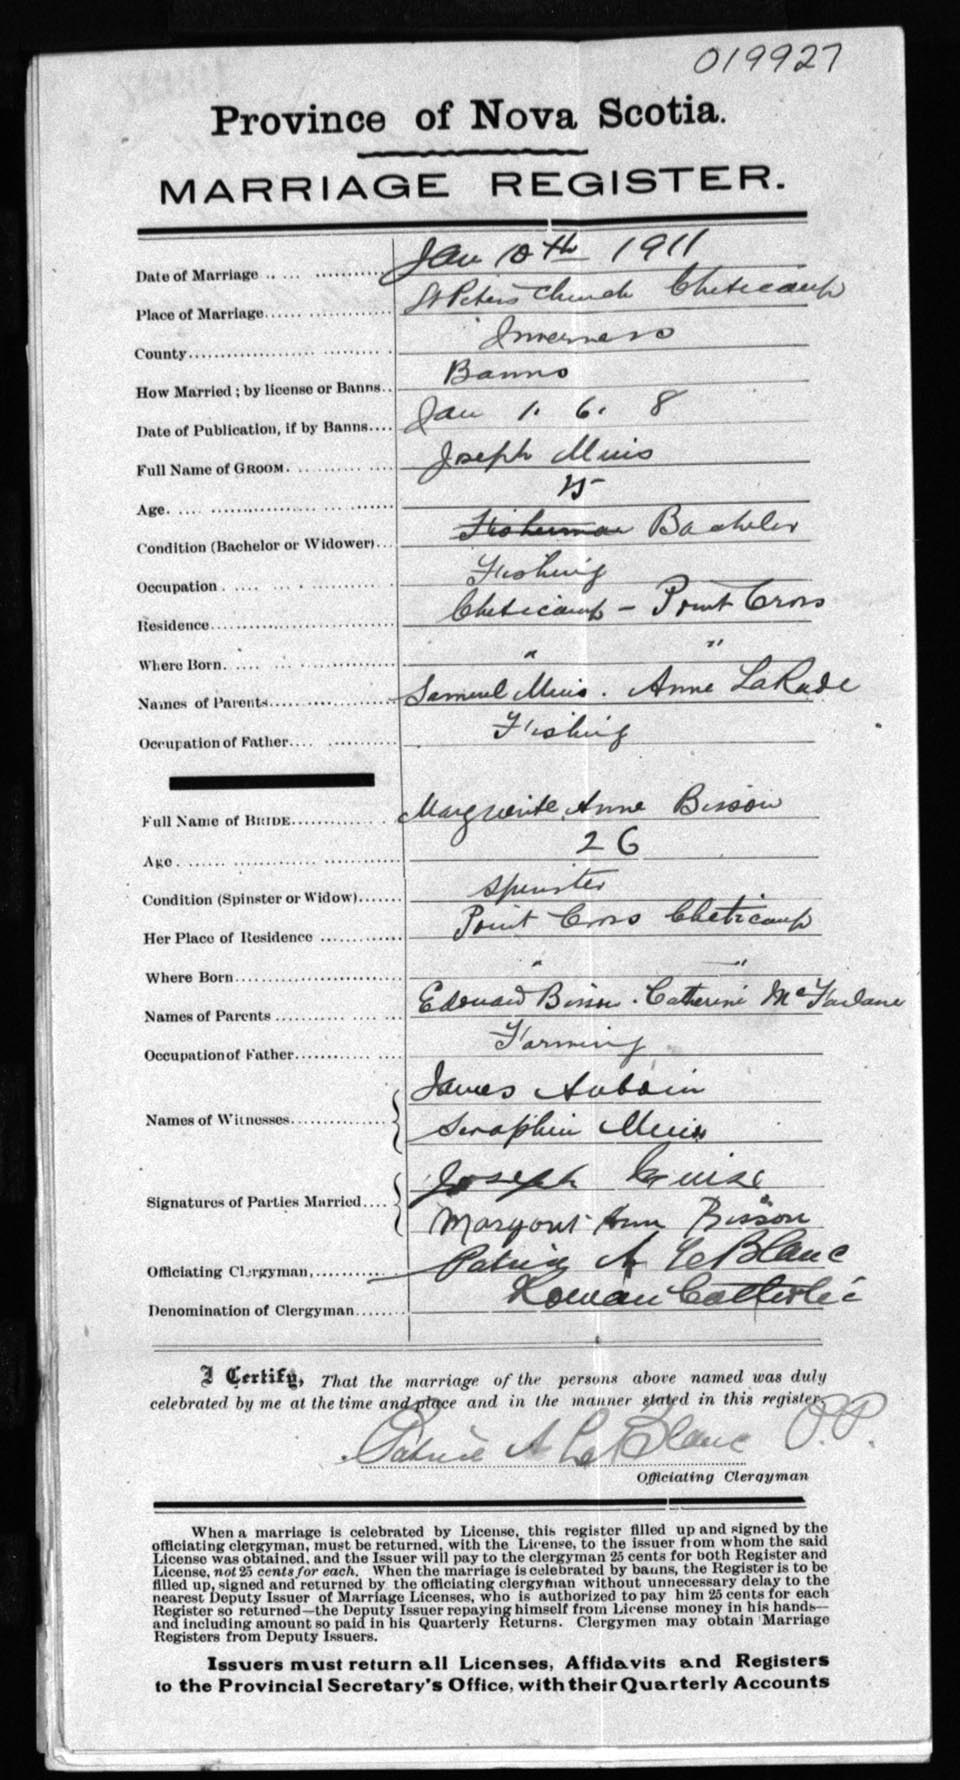 019927
Province of Nova Scotia.
MARRIAGE REGISTER.
Date of Marriage Jan 10th 1911
Place of Marriage St Peters Church Cheticamp
County Inverness
How Married; by license or Banns Banns
Date of Publication, if by Banns Jan 1. 6. 8
Full Name of GROOM. Joseph Muis
Age. 25
Condition (Bachelor or Widower) Fisherman Bachelor
Occupation Fishing
Residence Cheticamp - Point Cross
Where Born. " "
Names of Parents Samuel Muis. Anne LaRade
Occupation of Father Fishing
Full Name of BRIDE Marguerite Anne Bisson
Age. 26
Condition (Spinster or Widow) Spinster
Her Place of Residence Point Cross Cheticamp
Where Born " "
Names of Parents Edouard Bisson. Catherine McFarlane
Occupation of Father Farming
Names of Witnesses James Aubain
Seraphin Muis
Signatures of Parties Married Joseph
Ann Bisson
Officiating Clergyman, Patrice A LeBlanc
Denomination of Clergyman Roman Catholic
I Certify, That the marriage of the persons above named was duly
celebrated by me at the time and place and in the manner stated in this register.
Patrice A LeBlanc P.P.
Officiating Clergyman
When a marriage is celebrated by License, this register filled up and signed by the
officiating clergyman, must be returned, with the License, to the issuer from whom the said
License was obtained, and the Issuer will pay to the clergyman 25 cents for both Register and
License, not 25 cents for each. When the marriage is celebrated by banns, the Register is to be
filled up, signed and returned by the officiating clergyman without unnecessary delay to the
nearest Deputy Issuer of Marriage Licenses, who is authorized to pay him 25 cents for each
Register so returned—the Deputy Issuer repaying himself from License money in his hands—
and including amount so paid in his Quarterly Returns. Clergymen may obtain Marriage
Registers from Deputy Issuers.
Issuers must return all Licenses, Affidavits and Registers
to the Provincial Secretary's Office, with their Quarterly Accounts